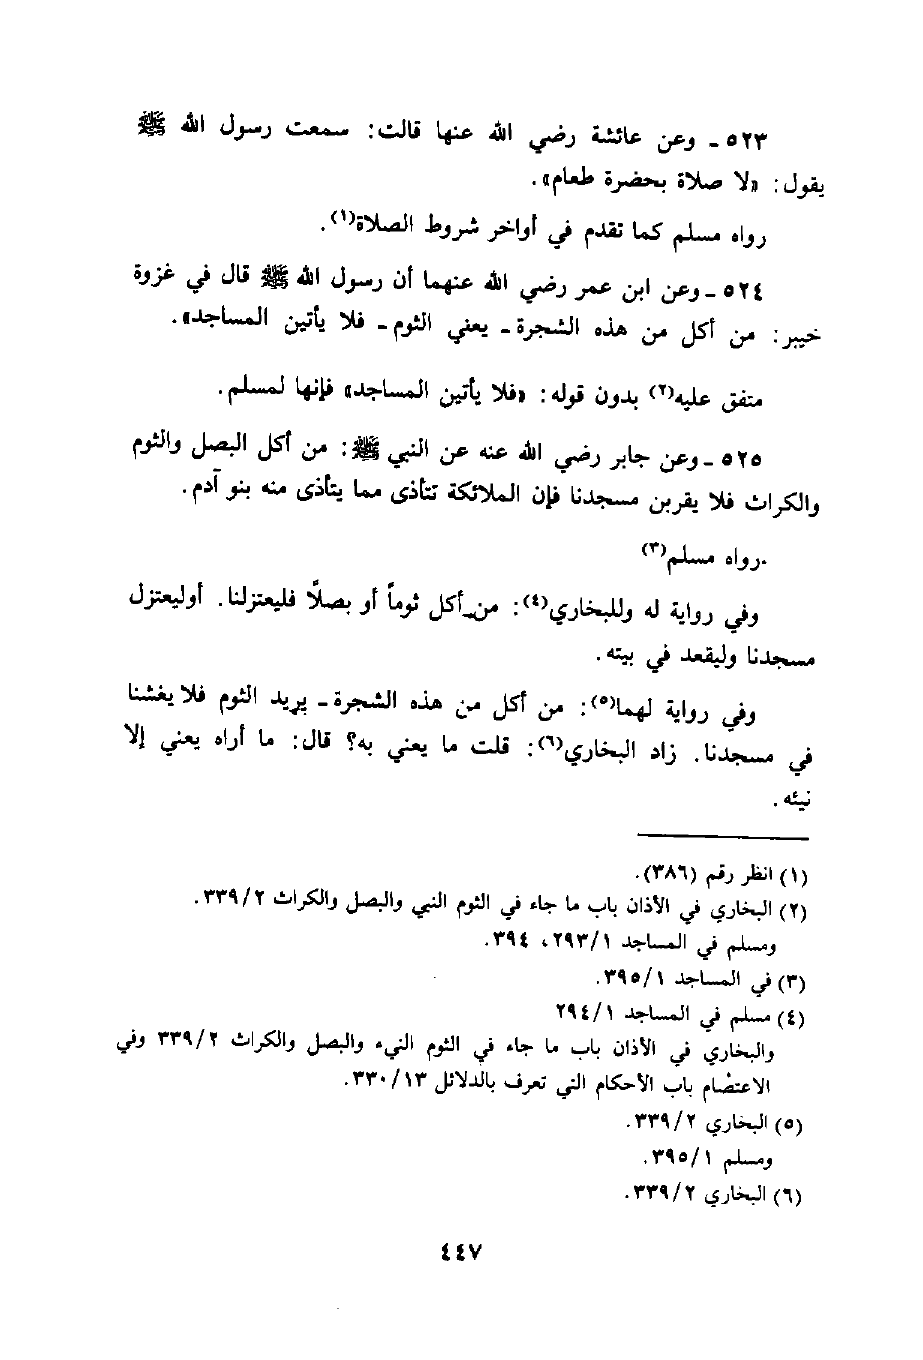 ٥٢٣ ـ وعن عائشة رضي الله عنها قالت: سمعت رسول الله ﷺ
يقول: «لا صلاة بحضرة طعام».
رواه مسلم كما تقدم في أواخر شروط الصلاة(١).
٥٢٤ ـ وعن ابن عمر رضي الله عنهما أن رسول الله ﷺ قال في غزوة
خيبر: من أكل من هذه الشجرة ـ يعني الثوم ـ فلا يأتين المساجد».
متفق عليه(٢) بدون قوله: «فلا يأتين المساجد» فإنها لمسلم.
٥٢٥ ـ وعن جابر رضي الله عنه عن النبي ﷺ: من أكل البصل والثوم
والكراث فلا يقربن مسجدنا فإن الملائكة تتأذى مما يتأذى منه بنو آدم.
رواه مسلم(٣).
وفي رواية له وللبخاري(٤): من أكل ثوماً أو بصلًا فليعتزلنا. أوليعتزل
مسجدنا وليقعد في بيته.
وفي رواية لهما(٥): من أكل من هذه الشجرة ـ يريد الثوم فلا يغشنا
في مسجدنا. زاد البخاري(٦): قلت ما يعني به؟ قال: ما أراه يعني إلا
نيئه.
(١) انظر رقم (٣٨٦).
(٢) البخاري في الأذان باب ما جاء في الثوم النبي والبصل والكراث ٣٣٩/٢.
ومسلم في المساجد ٢٩٣/١، ٣٩٤.
(٣) في المساجد ٣٩٥/١.
(٤) مسلم في المساجد ٢٩٤/١
والبخاري في الأذان باب ما جاء في الثوم النيء والبصل والكراث ٣٣٩/٢ وفي
الاعتصام باب الأحكام التي تعرف بالدلائل ٣٣٠/١٣.
(٥) البخاري ٣٣٩/٢.
ومسلم ٣٩٥/١.
(٦) البخاري ٣٣٩/٢.
٤٤٧